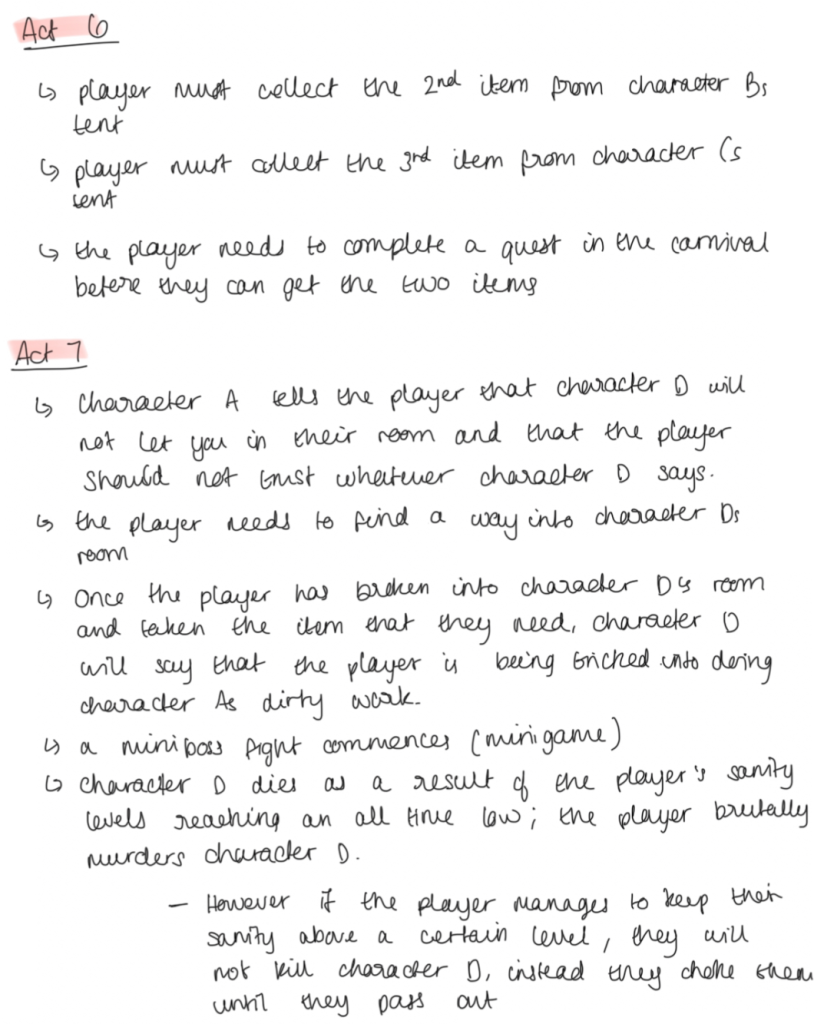 Act 6
↳ player must collect the 2nd item from character Bs
tent
↳ player must collect the 3rd item from character Cs
tent
↳ the player needs to complete a quest in the carnival
before they can get the two items
Act 7
↳ Character A tells the player that character D will
not let you in their room and that the player
should not trust whatever character D says.
↳ the player needs to find a way into character Ds
room
↳ Once the player has broken into character D's room
and taken the item that they need, character D
will say that the player is being tricked into doing
character As dirty work.
↳ a miniboss fight commences (minigame)
↳ character D dies as a result of the player's sanity
levels reaching an all time low; the player brutally
murders character D.
- However if the player manages to keep their
sanity above a certain level, they will
not kill character D, instead they choke them
until they pass out